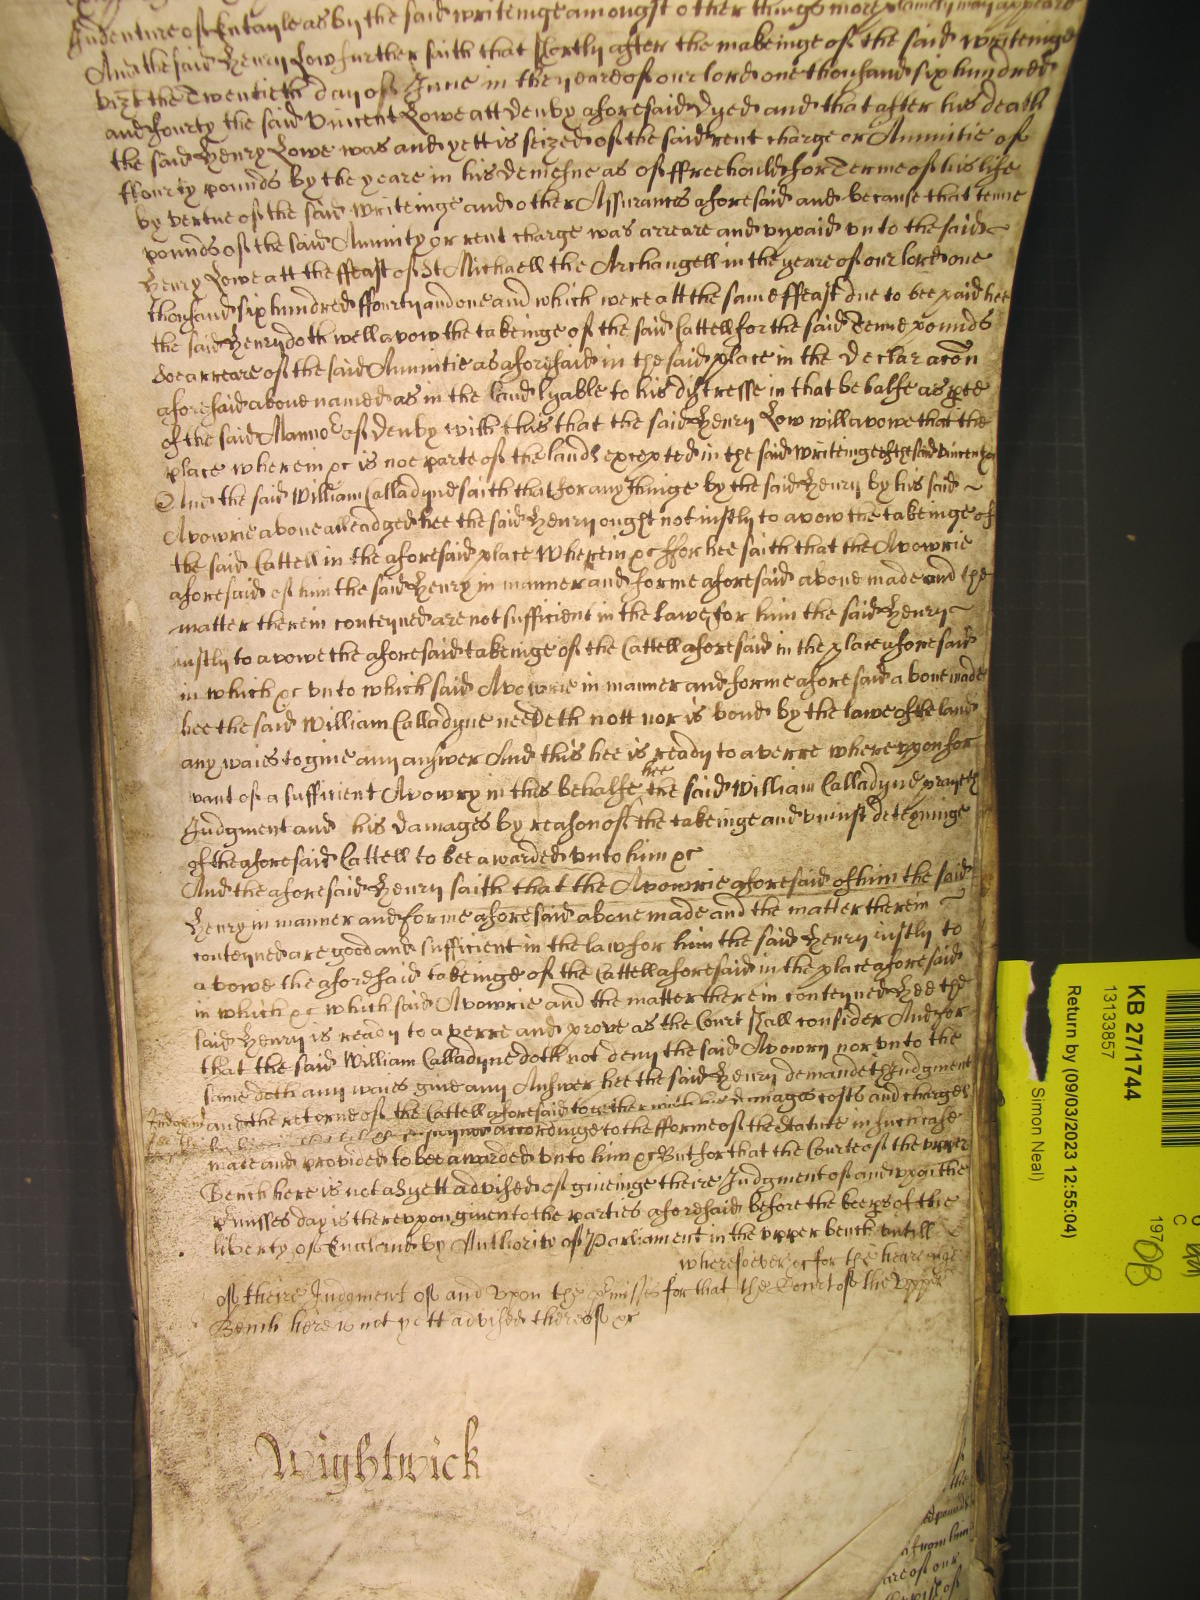 Indenture of Entayle as by the said writeinge amongst other things more plainely may appeare
And the said Henry Low further saith that shortly after the makeinge of the said writeinge
vizt the Twentieth day of June in the yeare of our lord one thousand six hundred
and fourty the said Vincent Lowe att Denby aforesaid dyed and that after his death
the said Henry Lowe was and yett is seized of the said rent charge or Annuitie of
ffourty pounds by the yeare in his demesne as of ffreehould for Terme of his life
by vertue of the said writeinge and other Assurances aforesaid and because that tenne
pounds of the said Annuity or rent charge was arreare and unpaid unto the said
Henry Lowe att the ffeast of St Michaell the Archangell in the yeare of our lord one
thousand six hundred ffourty and one and which were att the same ffeast due to bee paid hee
the said Henry doth well avow the takeinge of the said Cattell for the said Tenne pounds
soe arreare of the said Annuitie as aforesaid in the said place in the Declaracon
aforesaid above named as in the land lyable to his distresse in that behalfe as pte
of the said Manno of Denby with this that the said Henry Low will avowe that the
place wherein &c is noe parte of the lands excepted in the said writeinge of the said Vincent &c
And the said William Calladyne saith that for any thinge by the said Henry by his said
Avowrie above alleadged hee the said Henry ought not justly to avow the takeinge of
the said Cattell in the aforesaid place wherein &c ffor hee saith that the Avowrie
aforesaid of him the said Henry in manner and forme aforesaid above made and the
matter therein conteyned are not sufficient in the lawe for him the said Henry
justly to avowe the aforesaid takeinge of the Cattell aforesaid in the place aforesaid
in which &c unto which said Avowrie in manner and forme aforesaid above made
hee the said William Calladyne needeth nott nor is bound by the lawe of the land
any waies to give any answer And this hee is ready to averre whereupon for
want of a sufficient Avowry in this behalfe hee the said William Calladyne prayeth
Judgment and his damages by reason of the takeinge and uniust deteyninge
of the aforesaid Cattell to bee awarded unto him &c
And the aforesaid Henry saith that the Avowrie aforesaid of him the said
Henry in manner and forme aforesaid above made and the matter therein
conteyned are good and sufficient in the law for him the said Henry justly to
avowe the aforesaid takeinge of the Cattell aforesaid in the place aforesaid
in which &c which said Avowrie and the matter therein conteyned Hee the
said Henry is ready to averre and prove as the Court shall consider And for
that the said William Calladyne doth not deny the said Avowry nor unto the
same doth any waies give any Answer hee the said Henry demandeth Judgment
and the retorne of the Cattell aforesaid together with his damages costs and charges
accordinge to the fforme of the Statute in such case
made and provided to bee awarded unto him &c But for that the Courte of the upper
Bench here is not as yett advised of giveinge theire Judgment of and upon the
pmisses day is thereupon given to the parties aforesaid before the keeps of the
liberty of England by Authority of Parliament in the upper bench untill
wheresoever &c for the heareinge
of theire Judgment of and upon the pmisses for that the Court of the Upper
Bench here is not yett advised thereof &c
Wightwick
KB 27/1744
13133857
Return by (09/03/2023 12:55:04)
Simon Neal)